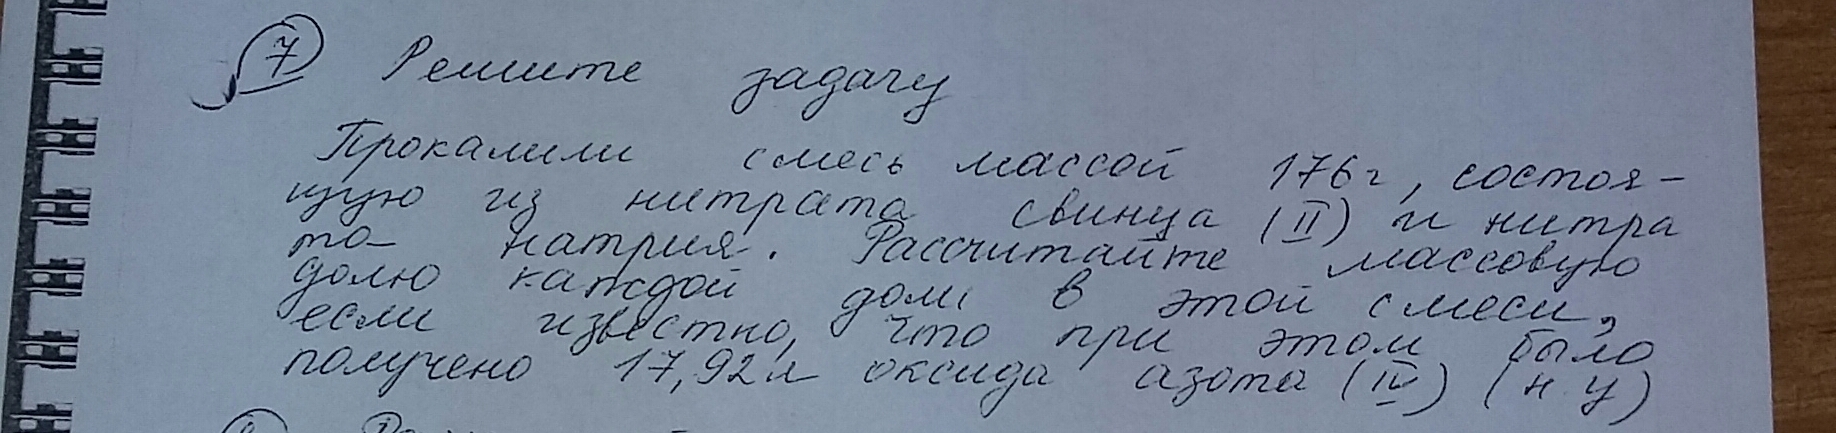 7 Решите задачу
Прокалили смесь массой 176 г, состоя-
щую из нитрата свинца (II) и нитра
та натрия. Рассчитайте массовую
долю каждой доли в этой смеси,
если известно, что при этом было
получено 17,92 л оксида азота (IV) (н у)